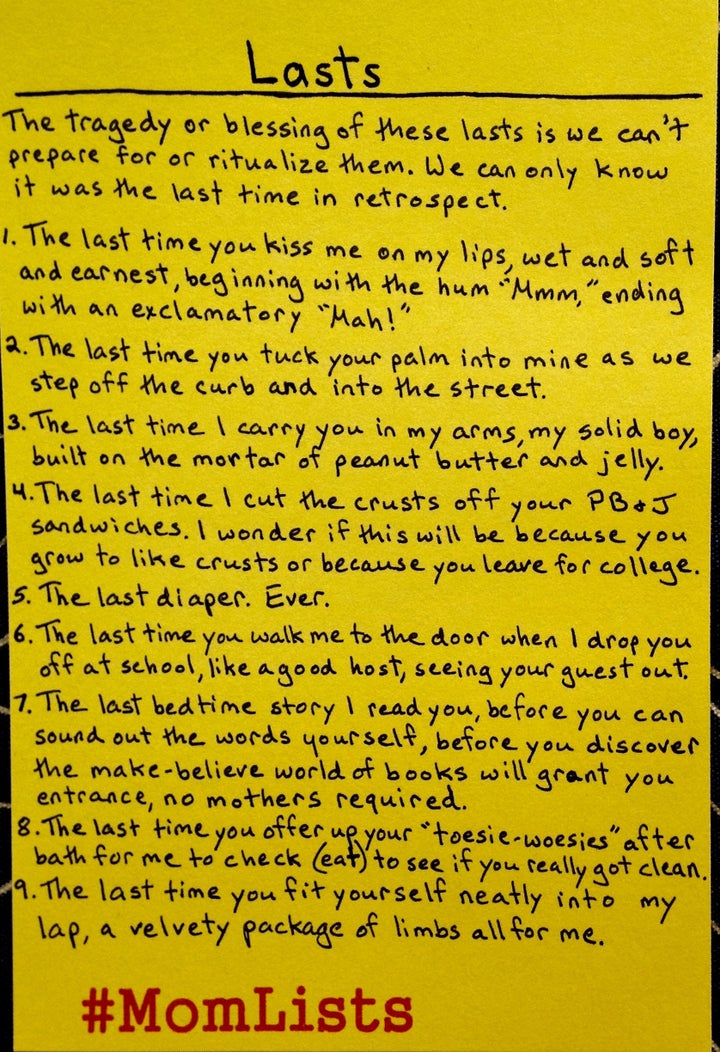 Lasts
The tragedy or blessing of these lasts is we can't
prepare for or ritualize them. We can only know
it was the last time in retrospect.
1. The last time you kiss me on my lips, wet and soft
and earnest, beginning with the hum "Mmm," ending
with an exclamatory "Mah!"
2. The last time you tuck your palm into mine as we
step off the curb and into the street.
3. The last time I carry you in my arms, my solid boy,
built on the mortar of peanut butter and jelly.
4. The last time I cut the crusts off your PB&J
sandwiches. I wonder if this will be because you
grow to like crusts or because you leave for college.
5. The last diaper. Ever.
6. The last time you walk me to the door when I drop you
off at school, like a good host, seeing your guest out.
7. The last bedtime story I read you, before you can
sound out the words yourself, before you discover
the make-believe world of books will grant you
entrance, no mothers required.
8. The last time you offer up your "toesie-woesies" after
bath for me to check (eat) to see if you really got clean.
9. The last time you fit yourself neatly into my
lap, a velvety package of limbs all for me.
#MomLists